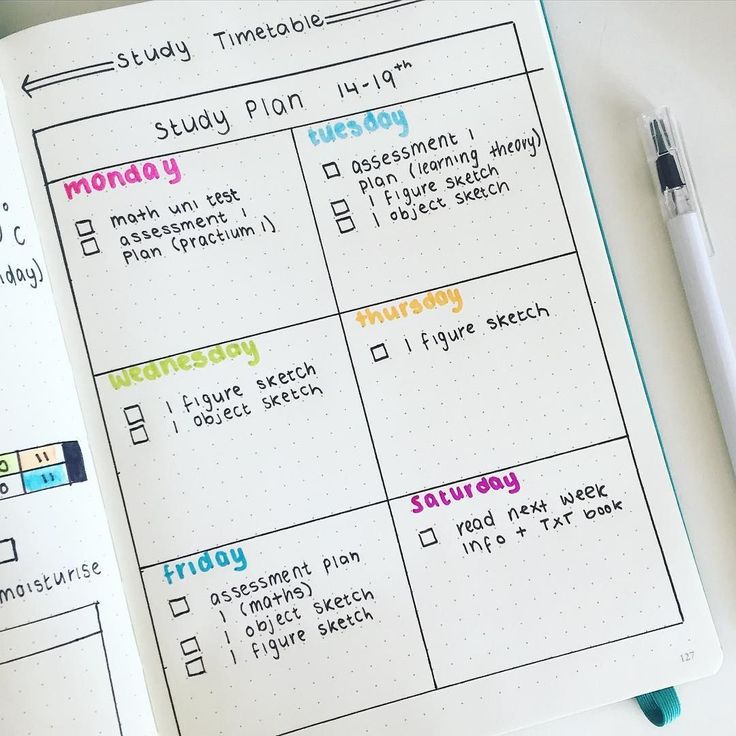 Study Timetable
Study Plan 14-19th
monday
math uni test
assessment 1
plan (practium 1)
tuesday
assessment 1
plan (learning theory)
1 figure sketch
1 object sketch
wednesday
1 figure sketch
1 object sketch
thursday
1 figure sketch
friday
assessment plan
1 (maths)
1 object sketch
1 figure sketch
saturday
read next week
info + TxT book
127
C
iday)
0 11
0 11
moisturise